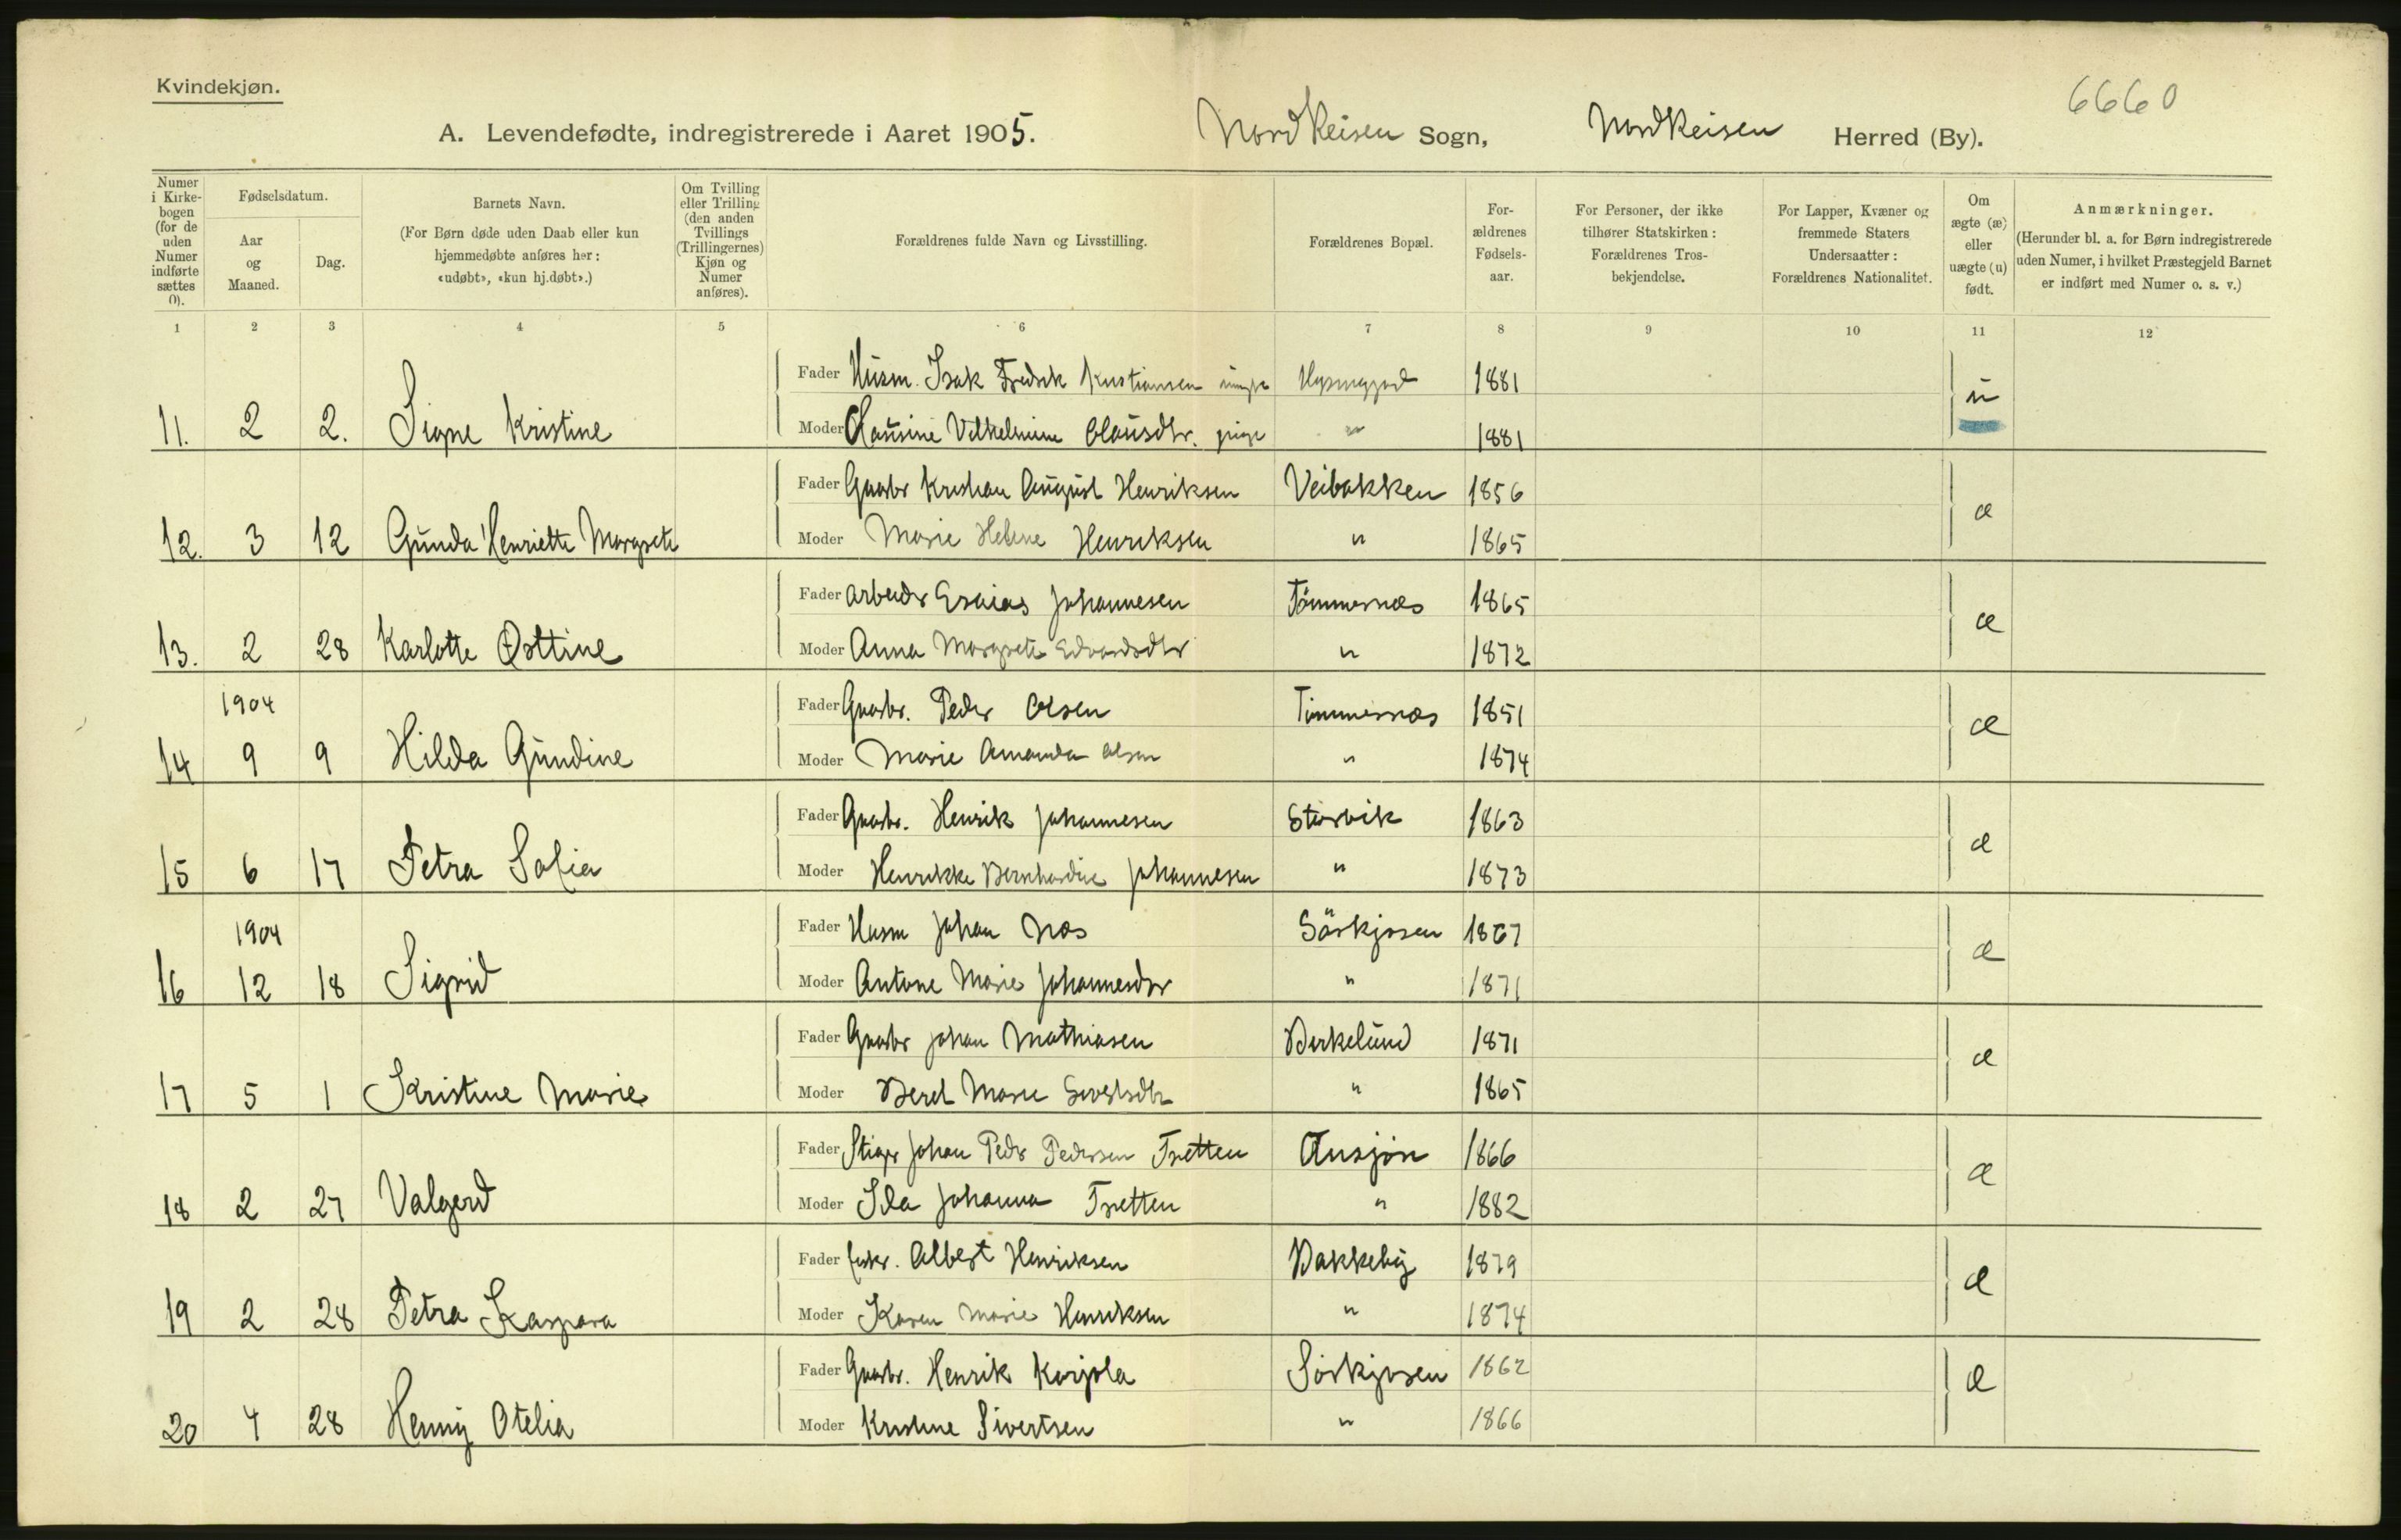 Kvindekjøn.
6660
A. Levendefødte, indregistrerede i Aaret 1905. Nordreisen Sogn, Nordreisen Herred (By).
Numer i Kirkebogen (for de uden Numer indførte sættes 0).
Fødselsdatum.
Aar og Maaned.
Dag.
Barnets Navn.
(For Børn døde uden Daab eller kun hjemmedøbte anføres her: «udøbt», «kun hj.døbt».)
Om Tvilling eller Trilling (den anden Tvillings (Trillingernes) Kjøn og Numer anføres).
Forældrenes fulde Navn og Livsstilling.
Forældrenes Bopæl.
Forældrenes Fødselsaar.
For Personer, der ikke tilhører Statskirken: Forældrenes Trosbekjendelse.
For Lapper, Kvæner og fremmede Staters Undersaatter: Forældrenes Nationalitet.
Om ægte (æ) eller uægte (u) født.
Anmærkninger.
(Herunder bl. a. for Børn indregistrerede uden Numer, i hvilket Præstegjeld Barnet er indført med Numer o. s. v.)
1 2 3 4 5 6 7 8 9 10 11 12
Fader Husm. Isak Fredrik Kristiansen 1881
11. 2 2. Signe Kristine u
Moder Hansine Vilhelmine Olausdtr. pige " 1881
Fader Gaarbr Kristian August Henriksen Veibakken 1856
12. 3 12 Gunda Henriette Margrete æ
Moder Marie Helene Henriksen " 1865
Fader Arbeider Esaias Johannesen Tømmernæs 1865
13. 2 28 Karlotte Østtine æ
Moder Anna Margrete Edvardsdtr " 1872
1904
Fader Gaarbr. Peder Olsen Timmernæs 1851
14 9 9 Hilda Gundine æ
Moder Marie Amanda Olsen " 1874
Fader Gaarbr. Henrik Johannesen Storvik 1863
15 6 17 Petra Sofia æ
Moder Henrikke Bernhardine Johannesen " 1873
1904
Fader Husm Johan Næs Sörkjosen 1867
16 12 18 Sigrid æ
Moder Antone Marie Johannesdtr " 1871
Fader Gaarbr Johan Mathiasen Birkelund 1871
17 5 1 Kristine Marie æ
Moder Beret Marie Sivertsdtr " 1865
Fader Stiger Johan Peder Pedersen Tretten 1866
18 2 27 Valgerd æ
Moder Ida Johanna Tretten " 1882
Fader fisker. Albert Henriksen Bakkeby 1879
19 2 28 Petra Kaspara æ
Moder Karen Marie Henriksen " 1874
Fader Gaarbr. Henrik Korjola Sörkjosen 1862
20 4 28 Henny Otelia æ
Moder Kristine Sivertsen " 1866